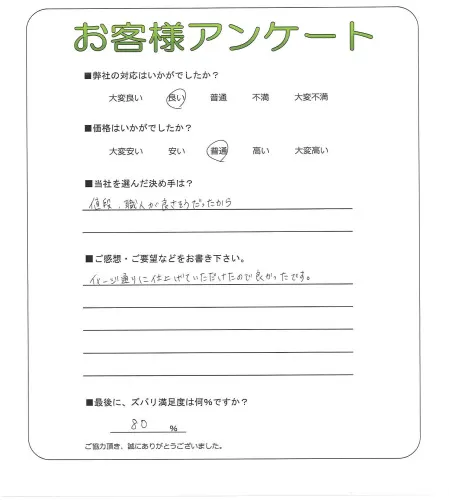 お客様アンケート
■弊社の対応はいかがでしたか？
大変良い 良い 普通 不満 大変不満
■価格はいかがでしたか？
大変安い 安い 普通 高い 大変高い
■当社を選んだ決め手は？
値段、職人が良さそうだったから
■ご感想・ご要望などをお書き下さい。
イメージ通りに仕上げていただけたので良かったです。
■最後に、ズバリ満足度は何%ですか？
80 %
ご協力頂き、誠にありがとうございました。